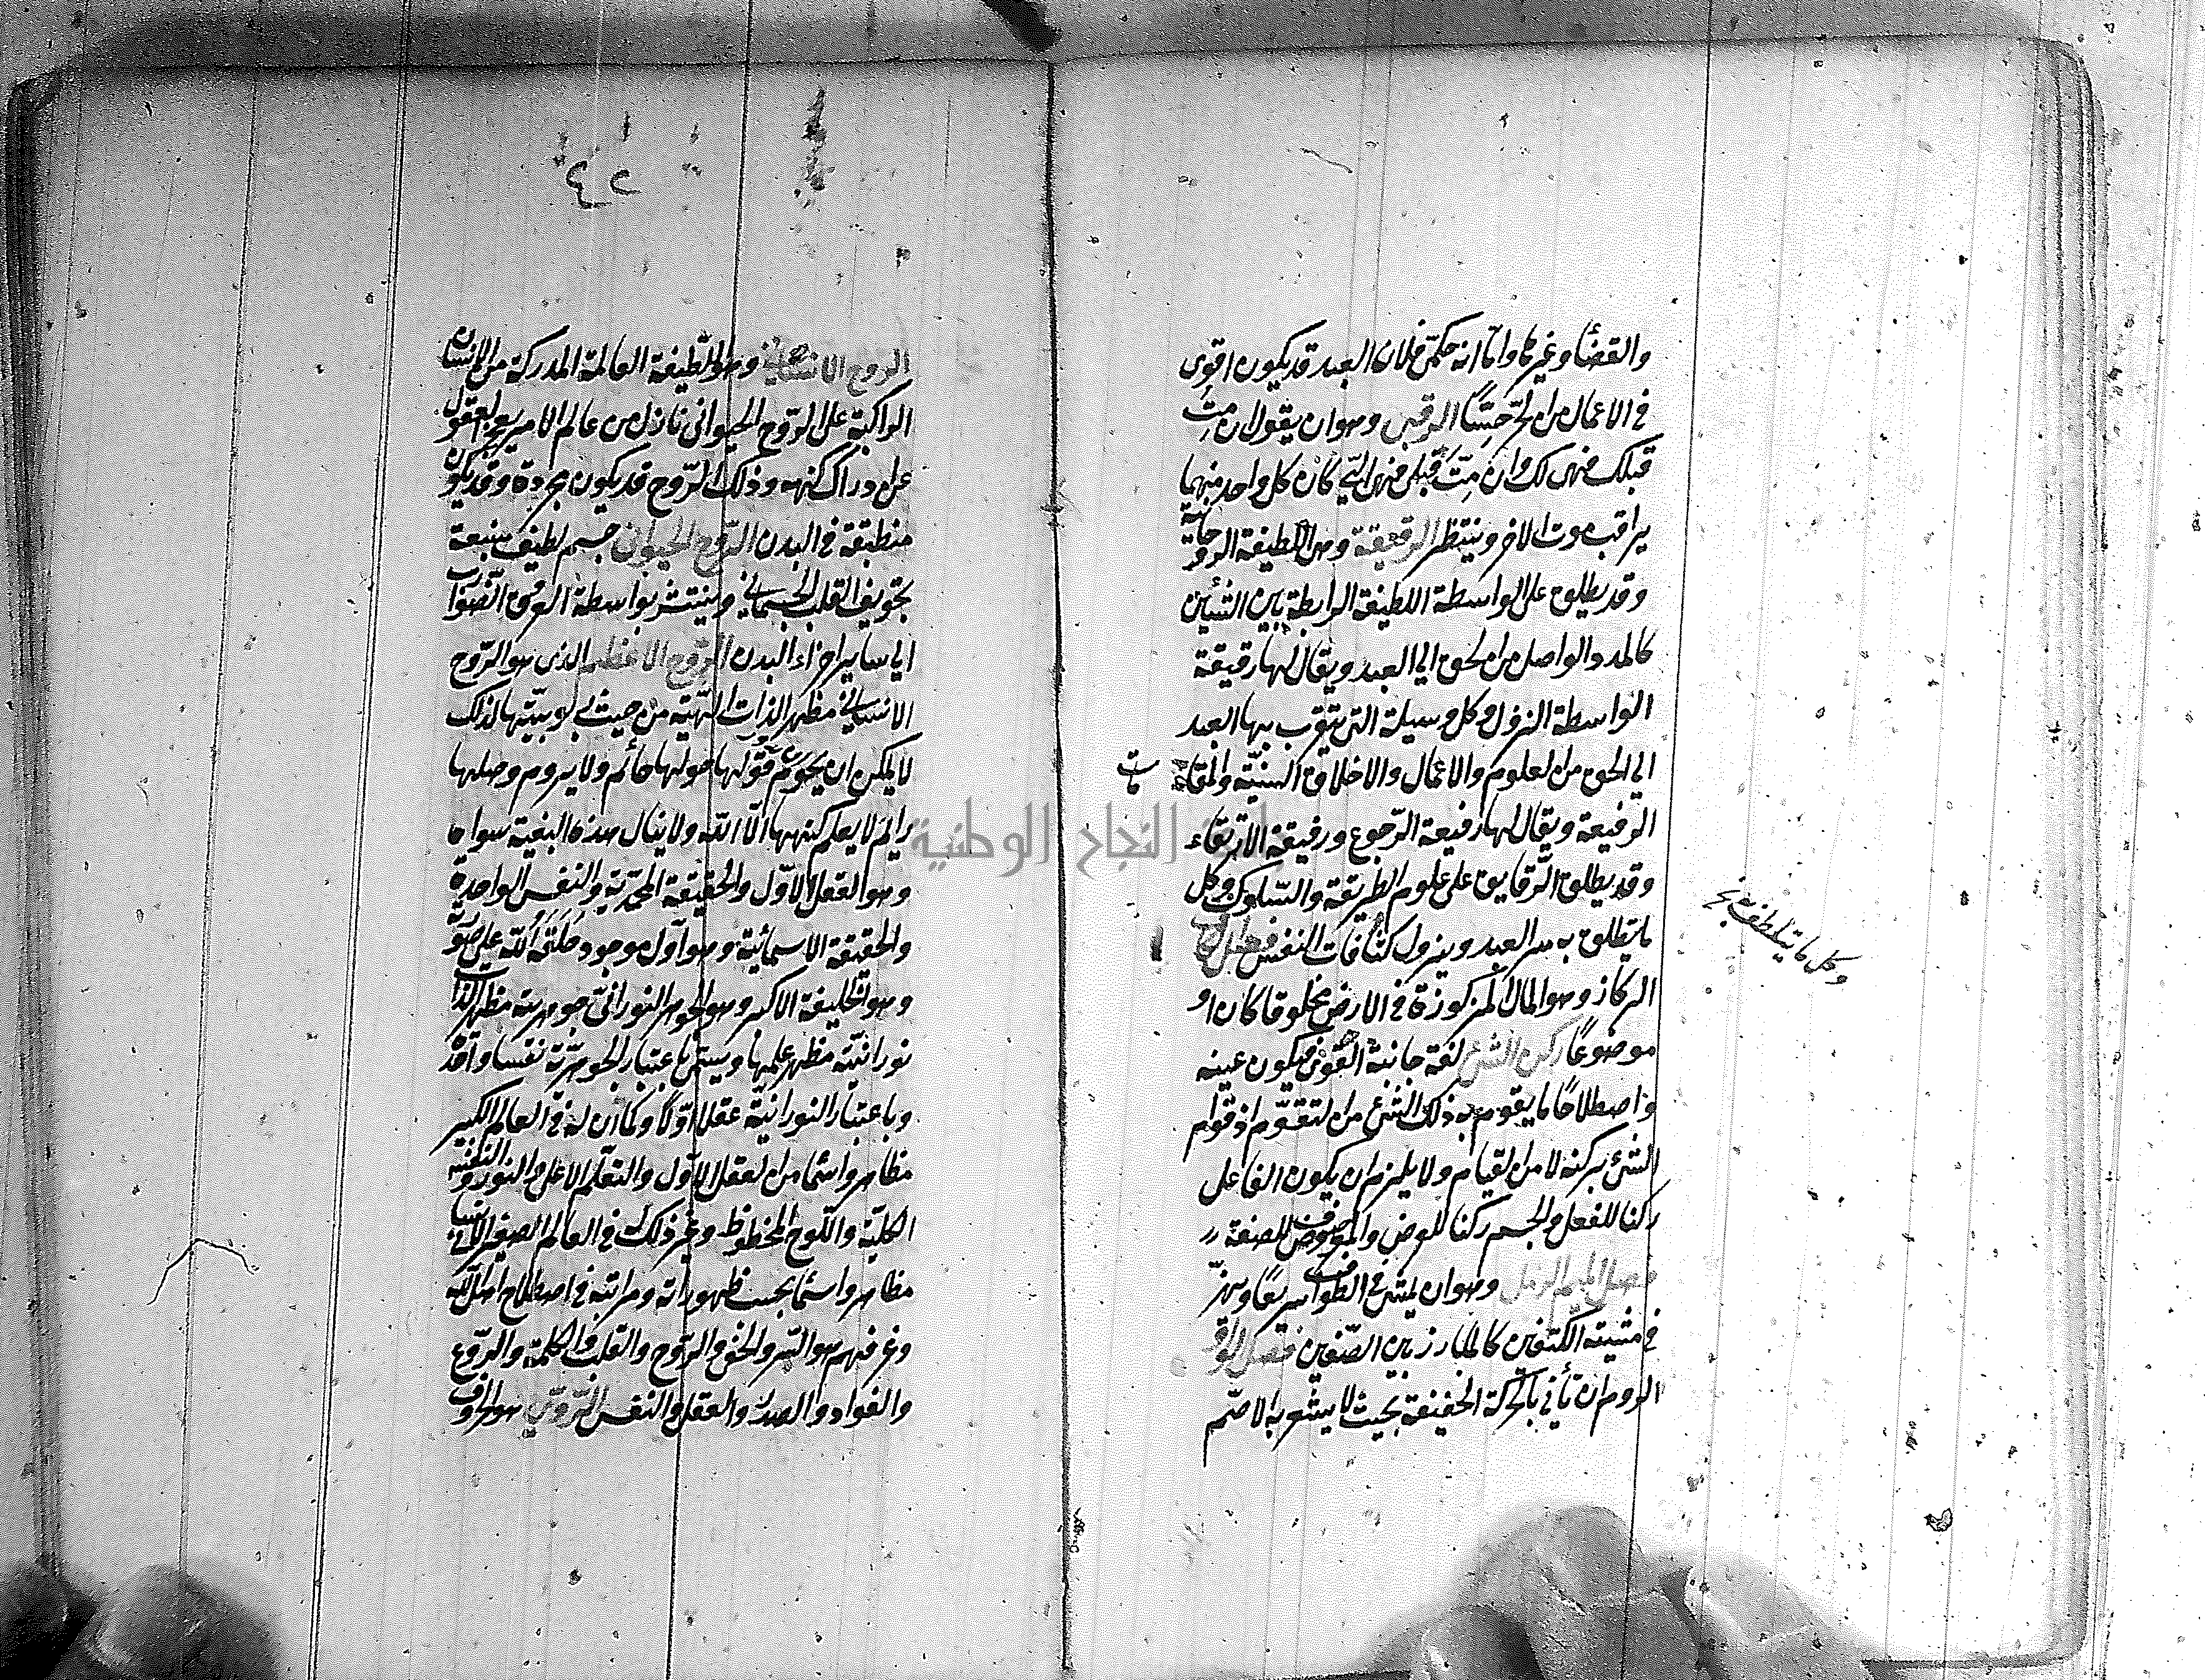 والقضأ وغيرهما وامّا انه حكمىّ فلان العبد قد يكون اقوى
فى الاعمال من الحرّ حسًّا الرقبى وهو ان يقول ان متِّ
قبلك فهى لك وان متَّ قبلى فهى الىّ كان كل واحد منهما
يراقب موت الاخر وينتظر الرقيقة وهى اللطيفة الروحانية
وقد يطلق على الواسطة اللطيفة الرابطة بين الشئين
كالمدد الواصل من الحق الى العبد ويقال لها رقيقة
الواسطة النزول وكل وسيلة التى يتقرب بها العبد
الى الحق من العلوم والاعمال والاخلاق السنيّة والمقامات
الرفيعة ويقال لها رفيعة الرّجوع ورفيقة الارتقاء
وقد يطلق الرّقايق على علوم الطريقة والسّلوك وكل
ما يتطلق به سر العبد ويزول كثافات النفس فصل الكا
وكل ما يتلطف نخ
الركاز وهو المال المركوزة فى الارض مخلوقا كان او
موضوعًا ركن الشئ لغة جانبه القوى فيكون عينه
واصطلاحًا ما يقوم به ذلك الشئ من التقوّم اذ قوام
الشئ بركنه لا من القيام ولا يلزم ان يكون الفاعل
ركنا للفعل والجسم ركنا للعرض والموصوف للصفة
فصل الميم الرمل وهو ان يمشى فى الطواف سريعًا ويهزّ
فى مشيته الكتفين كالمبارز بين الصّفين فصل الواو
الروم ان تأتى بالحركة الخفيفة بحيث لا يشعر به الاصّم
٤٢
الروح الانسانى وهو اللّطيفة العالمة المدركة من الانسان
الراكبة على الرّوح الحيوانى نازل من عالم الامر يعجز العقول
عن ادراك كنهه وذلك الرّوح قد يكون مجردة وقد يكون
منطبقة فى البدن الرّوح الحيوانى جسم لطيف منبعه
تجويف القلب الجسمانى وينتشر بواسطة العروق الضوارب
الى ساير اجزاء البدن الرّوح الاعظم الذى هو الرّوح
الانسانى مظهر الذات الهيّة من حيث ربوبيّتها لذلك
لا يمكن ان يحوم حولها حائم ولا يروم وصلها
رايم لا يعلم كنهها الّا اللّه ولا ينال هذه البغية سواه
وهو العقل الاوّل والحقيقة المحمّديّة والنفس الواحدة
والحقيقة الاسمائية وهو اوّل موجود خلقه اللّه على صورته
وهو الخليفة الاكبر وهو الجوهر النورانىّ جوهريته مظهر الذات
نورانيّته مظهر علمها ويسمّى باعتبار الجوهريّة نفسا واحدة
وباعتبار النورانيّة عقلا اوّلًا وكما ان له فى العالم الكبير
مظاهر واسمًا من العقل الاوّل والقلم الاعلى والنور والنفس
الكليّة واللّوح المحفوظ وغير ذلك فى العالم الصغير الانسانى
مظاهر واسمًا بحسب ظهوراته ومراتبه فى اصطلاح اهل اللّه
وغيرهم هو السّر والخفى والرّوح والقلب والكلمة والرّوع
والفواد والصدر والعقل والنفس الرّوىّ هو الحرف
جامعة النجاح الوطنية